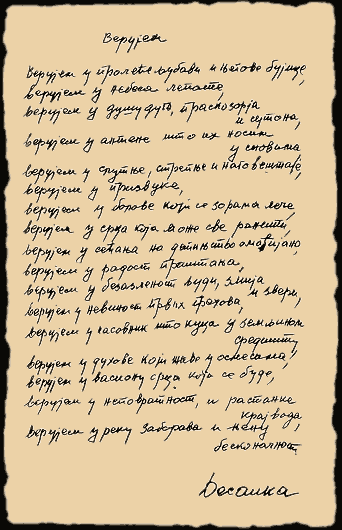 Верујем
Верујем у пролеће љубави и његове бујице,
верујем у небеса лепоте,
верујем у душу дуга, праскозорја
и сутона,
верујем у антене што их носим
у сновима
верујем у слутње, стрепње и наговештаје,
верујем у призвуке,
верујем у обрве које се зорама легу,
верујем у срца која може све ранити,
верујем у сећања на детињство
верујем у радост праштања,
верујем у безазленост људи, змија
и звери,
верујем у невиност првих грехова,
верујем у часовник што куца у земљином
средишту,
верујем у духове који живе у осмесима,
верујем у васиону срца која се буде,
верујем у неповратност, и растанке
крај вода
верујем у реку заборава и њену
бесконачност
Десанка